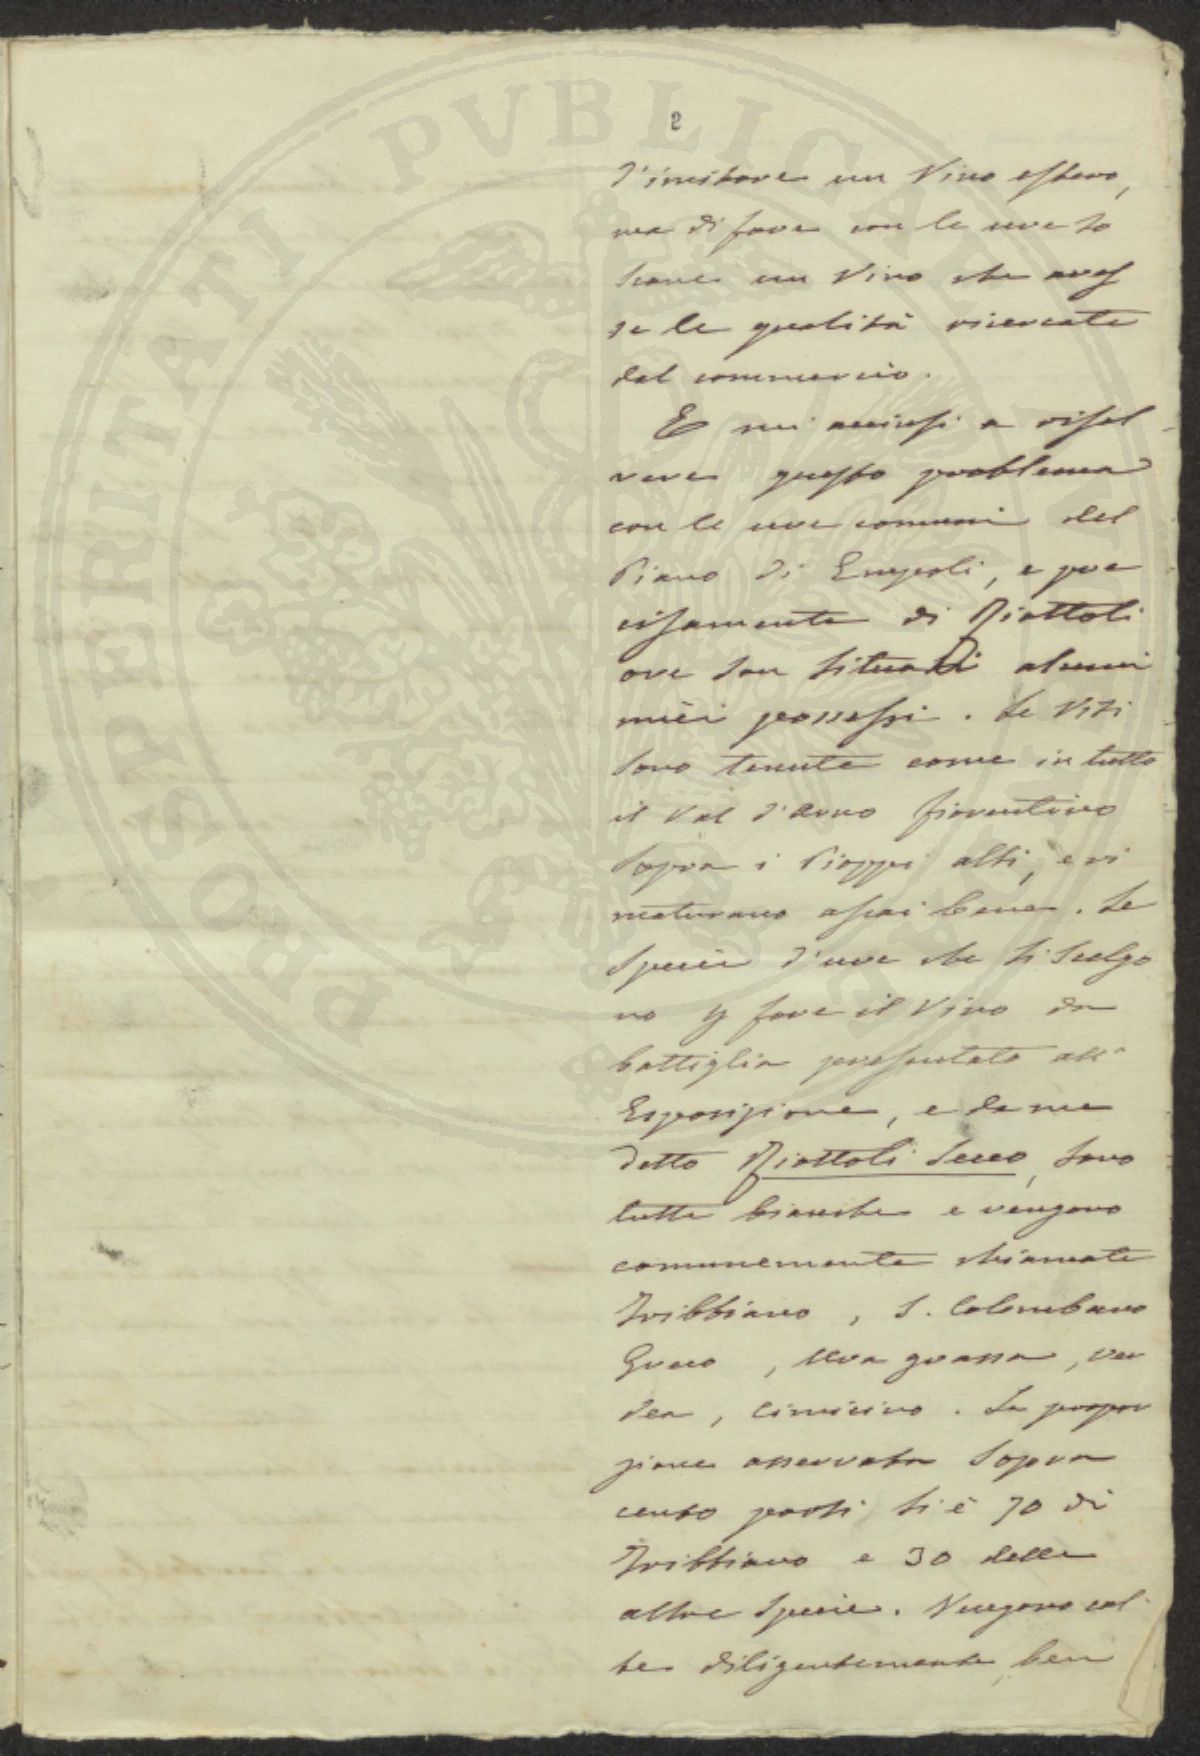 2
d'imitare un Vino estero,
ma di fare con le uve to
scane un Vino che aves
se le qualità ricercate
dal commercio.
E mi accinsi a risol
vere questo problema
con le uve comuni del
Piano di Empoli, e pre
cisamente di Riottoli
ove son situati alcuni
miei possessi. Le Viti
sono tenute come in tutto
il Val d'Arno fiorentino
sopra i Pioppi alti, e vi
maturano assai bene. Le
specie d'uve che si scelgo
no p fare il Vino da
battiglia presentato all'
Esposizione, e da me
detto Riottoli Secco, sono
tutte bianche e vengono
comunemente chiamate
Tribbiano, S. Colombano
Greco, Uva grassa, ver
dea, Cimicino. La propor
zione osservata sopra
cento parti si è 70 di
Tribbiano e 30 delle
altre specie. Vengono col
te diligentemente ben
PROSPERITATI PVBLICAE AVGENDAE